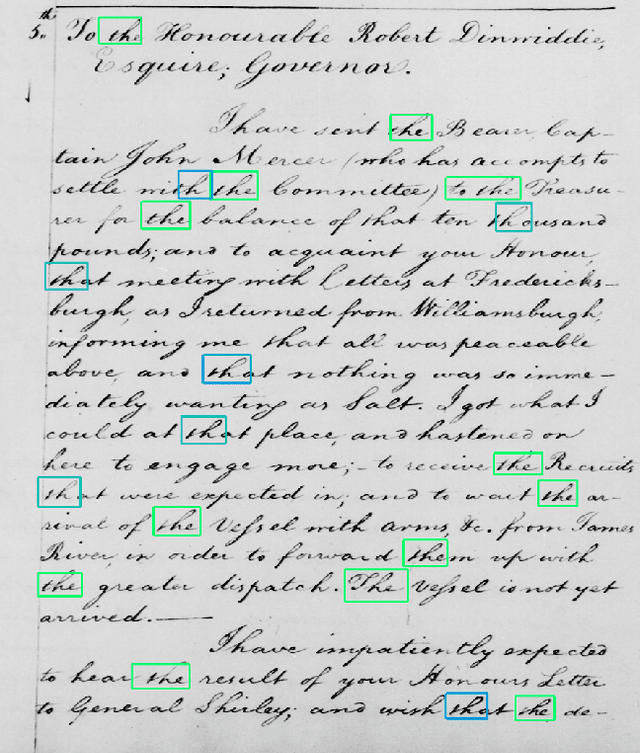 5.th To the Honourable Robert Dinwiddie,
Esquire; Governor.
I have sent the Bearer Cap-
tain John Mercer (who has accompts to
settle with the Committee) to the Treasu-
rer for the balance of that ten thousand
pounds; and to acquaint your Honour,
that meeting with Letters at Fredericks-
burgh, as I returned from Williamsburgh,
informing me that all was peaceable
above, and that nothing was so imme-
diately wanting as Salt. I got what I
could at that place, and hastened on
here to engage more; - to receive the Recruits
that were expected in; and to wait the ar-
rival of the Vessel with arms, &c. from James
River, in order to forward them up with
the greater dispatch. The Vessel is not yet
arrived. —
I have impatiently expected
to hear the result of your Honours Letter
to General Shirley; and wish that the de-